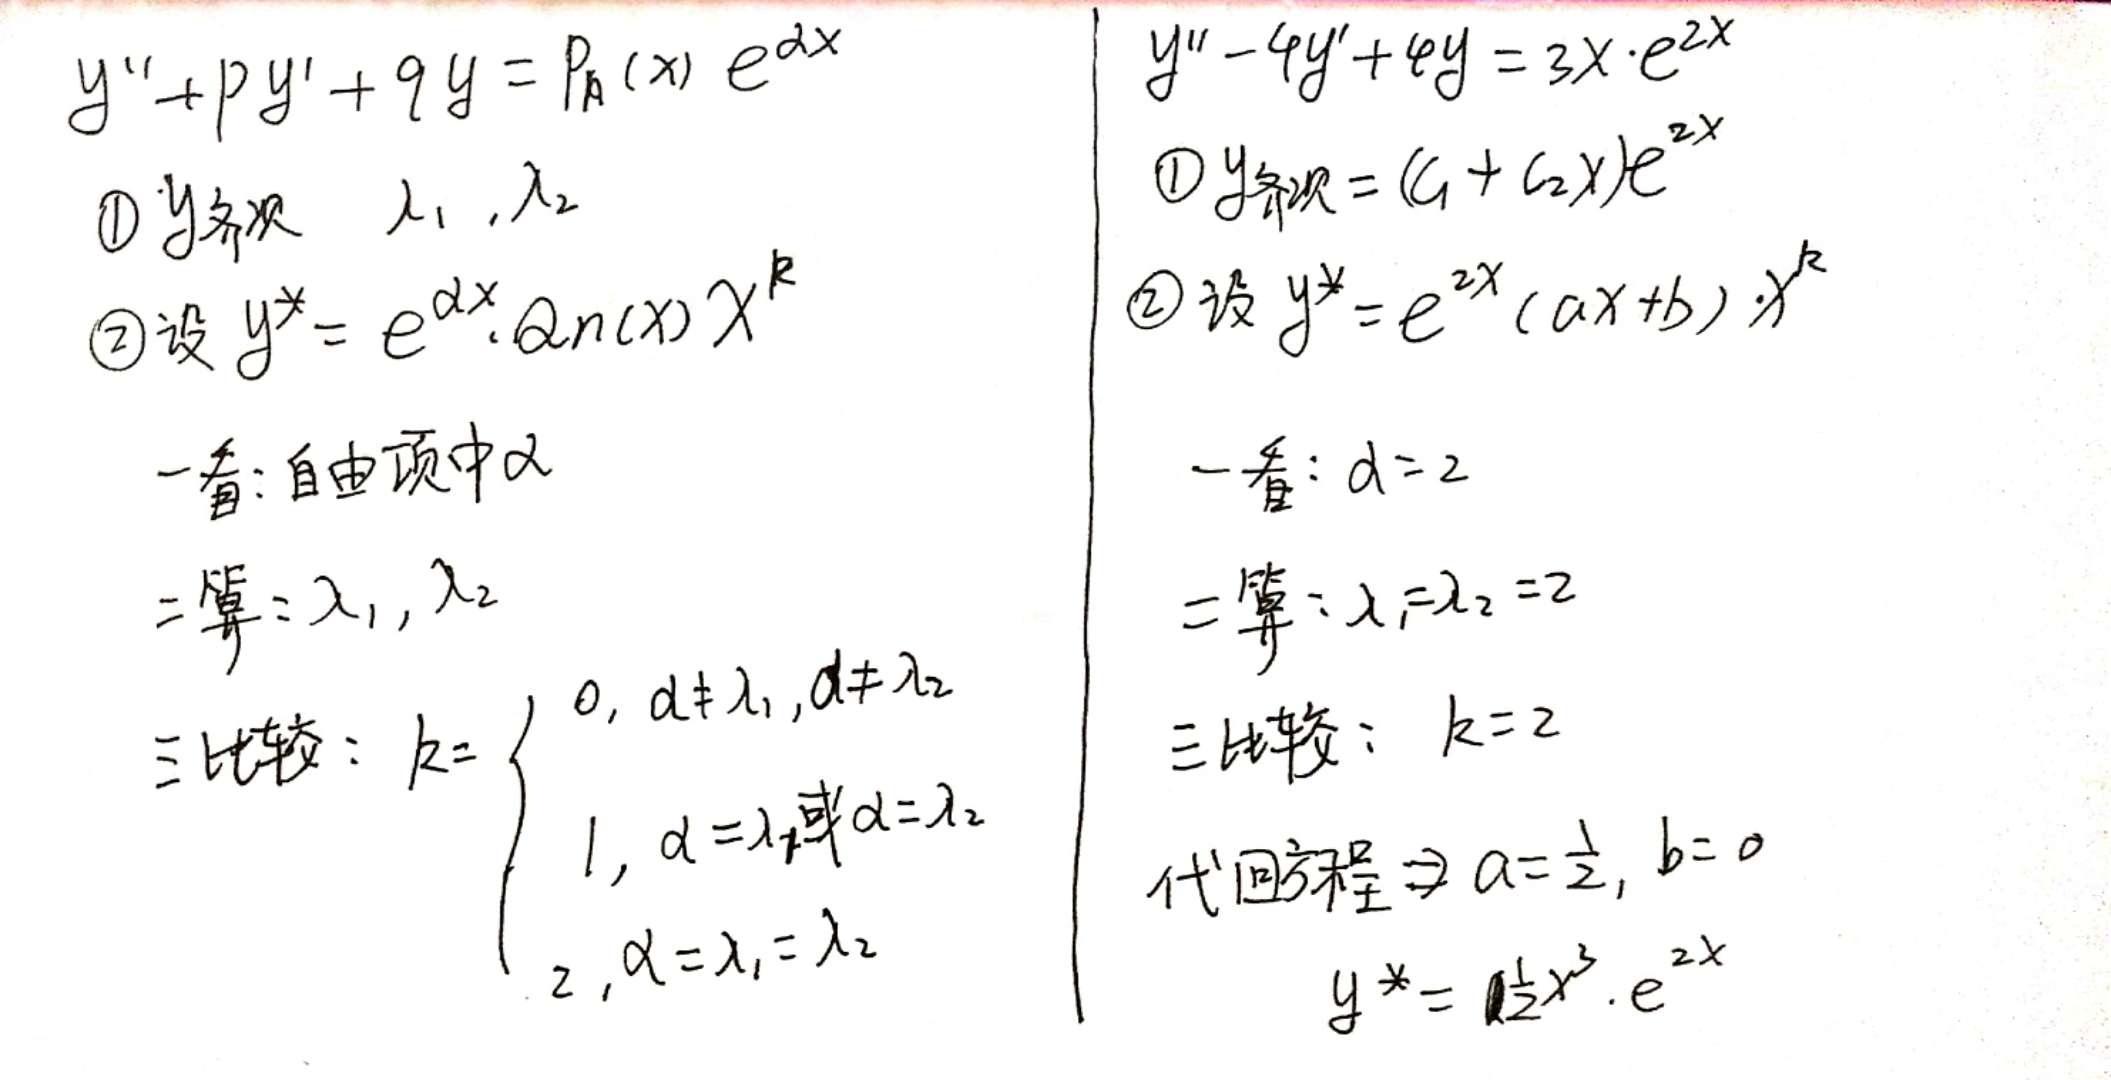 y'' + py' + qy = Pₙ(x) e^{αx}
① y齐次 λ₁ , λ₂
② 设 y* = e^{αx}·Qn(x) x^k
一看: 自由项中α
二算: λ₁, λ₂
三比较: k= { 0, α≠λ₁, α≠λ₂
1, α=λ₁或α=λ₂
2, α=λ₁=λ₂
y'' - 4y' + 4y = 3x·e^{2x}
① y齐次 = (C₁ + C₂x)e^{2x}
② 设 y* = e^{2x} (ax+b)·x^k
一看: α=2
二算: λ₁=λ₂=2
三比较: k=2
代回方程 ⇒ a=\frac{1}{2}, b=0
y* = \frac{1}{2}x³·e^{2x}